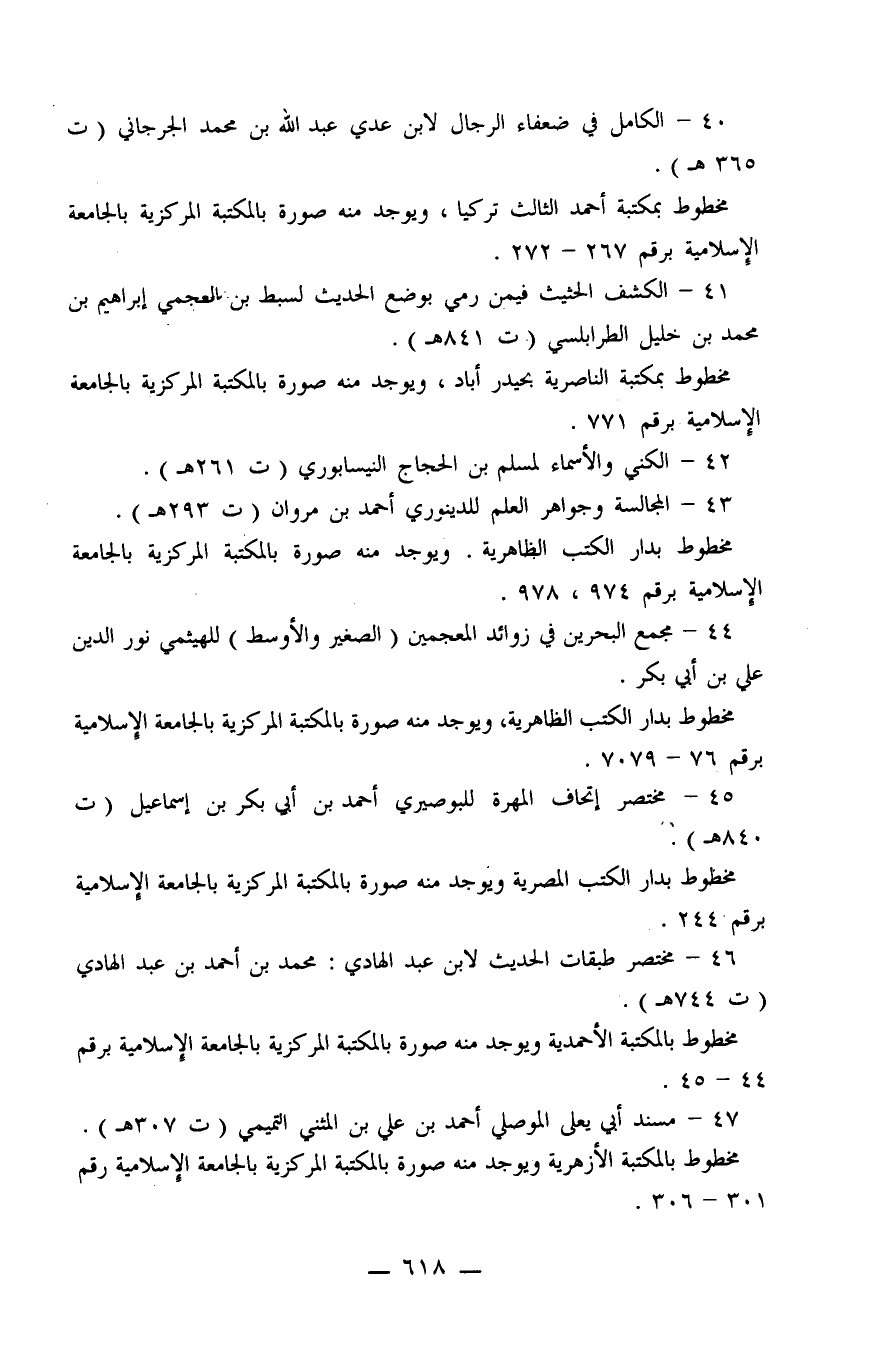 ٤٠ – الكامل في ضعفاء الرجال لابن عدي عبد الله بن محمد الجرجاني ( ت
٣٦٥ هـ ) .
مخطوط بمكتبة أحمد الثالث تركيا ، ويوجد منه صورة بالمكتبة المركزية بالجامعة
الإسلامية برقم ٢٦٧ – ٢٧٢ .
٤١ – الكشف الحثيث فيمن رمي بوضع الحديث لسبط بن العجمي إبراهيم بن
محمد بن خليل الطرابلسي ( ت ٨٤١هـ ) .
مخطوط بمكتبة الناصرية بحيدر أباد ، ويوجد منه صورة بالمكتبة المركزية بالجامعة
الإسلامية برقم ٧٧١ .
٤٢ – الكني والأسماء لمسلم بن الحجاج النيسابوري ( ت ٢٦١هـ ) .
٤٣ – المجالسة وجواهر العلم للدينوري أحمد بن مروان ( ت ٢٩٣هـ ) .
مخطوط بدار الكتب الظاهرية . ويوجد منه صورة بالمكتبة المركزية بالجامعة
الإسلامية برقم ٩٧٤ ، ٩٧٨ .
٤٤ – مجمع البحرين في زوائد المعجمين ( الصغير والأوسط ) للهيثمي نور الدين
علي بن أبي بكر .
مخطوط بدار الكتب الظاهرية، ويوجد منه صورة بالمكتبة المركزية بالجامعة الإسلامية
برقم ٧٦ – ٧٠٧٩ .
٤٥ – مختصر إتحاف المهرة للبوصيري أحمد بن أبي بكر بن إسماعيل ( ت
٨٤٠هـ ) .
مخطوط بدار الكتب المصرية ويوجد منه صورة بالمكتبة المركزية بالجامعة الإسلامية
برقم ٢٤٤ .
٤٦ – مختصر طبقات الحديث لابن عبد الهادي : محمد بن أحمد بن عبد الهادي
( ت ٧٤٤هـ ) .
مخطوط بالمكتبة الأحمدية ويوجد منه صورة بالمكتبة المركزية بالجامعة الإسلامية برقم
٤٤ – ٤٥ .
٤٧ – مسند أبي يعلى الموصلي أحمد بن علي بن المثني التميمي ( ت ٣٠٧هـ ) .
مخطوط بالمكتبة الأزهرية ويوجد منه صورة بالمكتبة المركزية بالجامعة الإسلامية رقم
٣٠١ – ٣٠٦ .
— ٦١٨ —